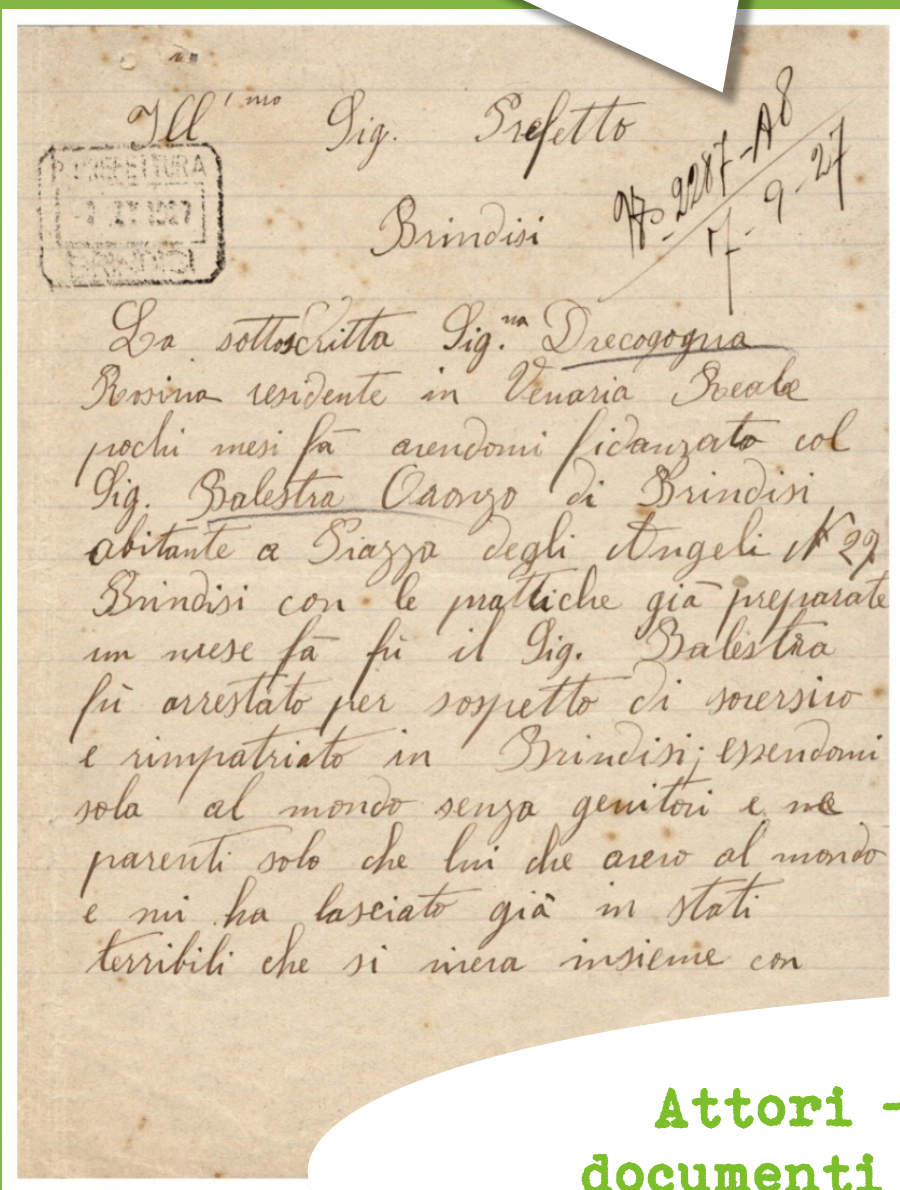 Ill'mo Sig. Prefetto
R. PREFETTURA
IX 1927
BRINDISI
No 2287-A8
7-9-27
Brindisi
La sottoscritta Sig.na Drecogogna
Rosina residente in Venaria Reale
pochi mesi fà avendomi fidanzato col
Sig. Balestra Oronzo di Brindisi
abitante a Piazza degli Angeli N 29
Brindisi con le prattiche già preparate
un mese fà fù il Sig. Balestra
fù arrestato per sospetto di soversivo
e rimpatriato in Brindisi; essendomi
sola al mondo senza genitori e ne
parenti solo che lui che avevo al mondo
e mi ha lasciato già in stati
terribili che si viveva insieme con
Attori -
documenti